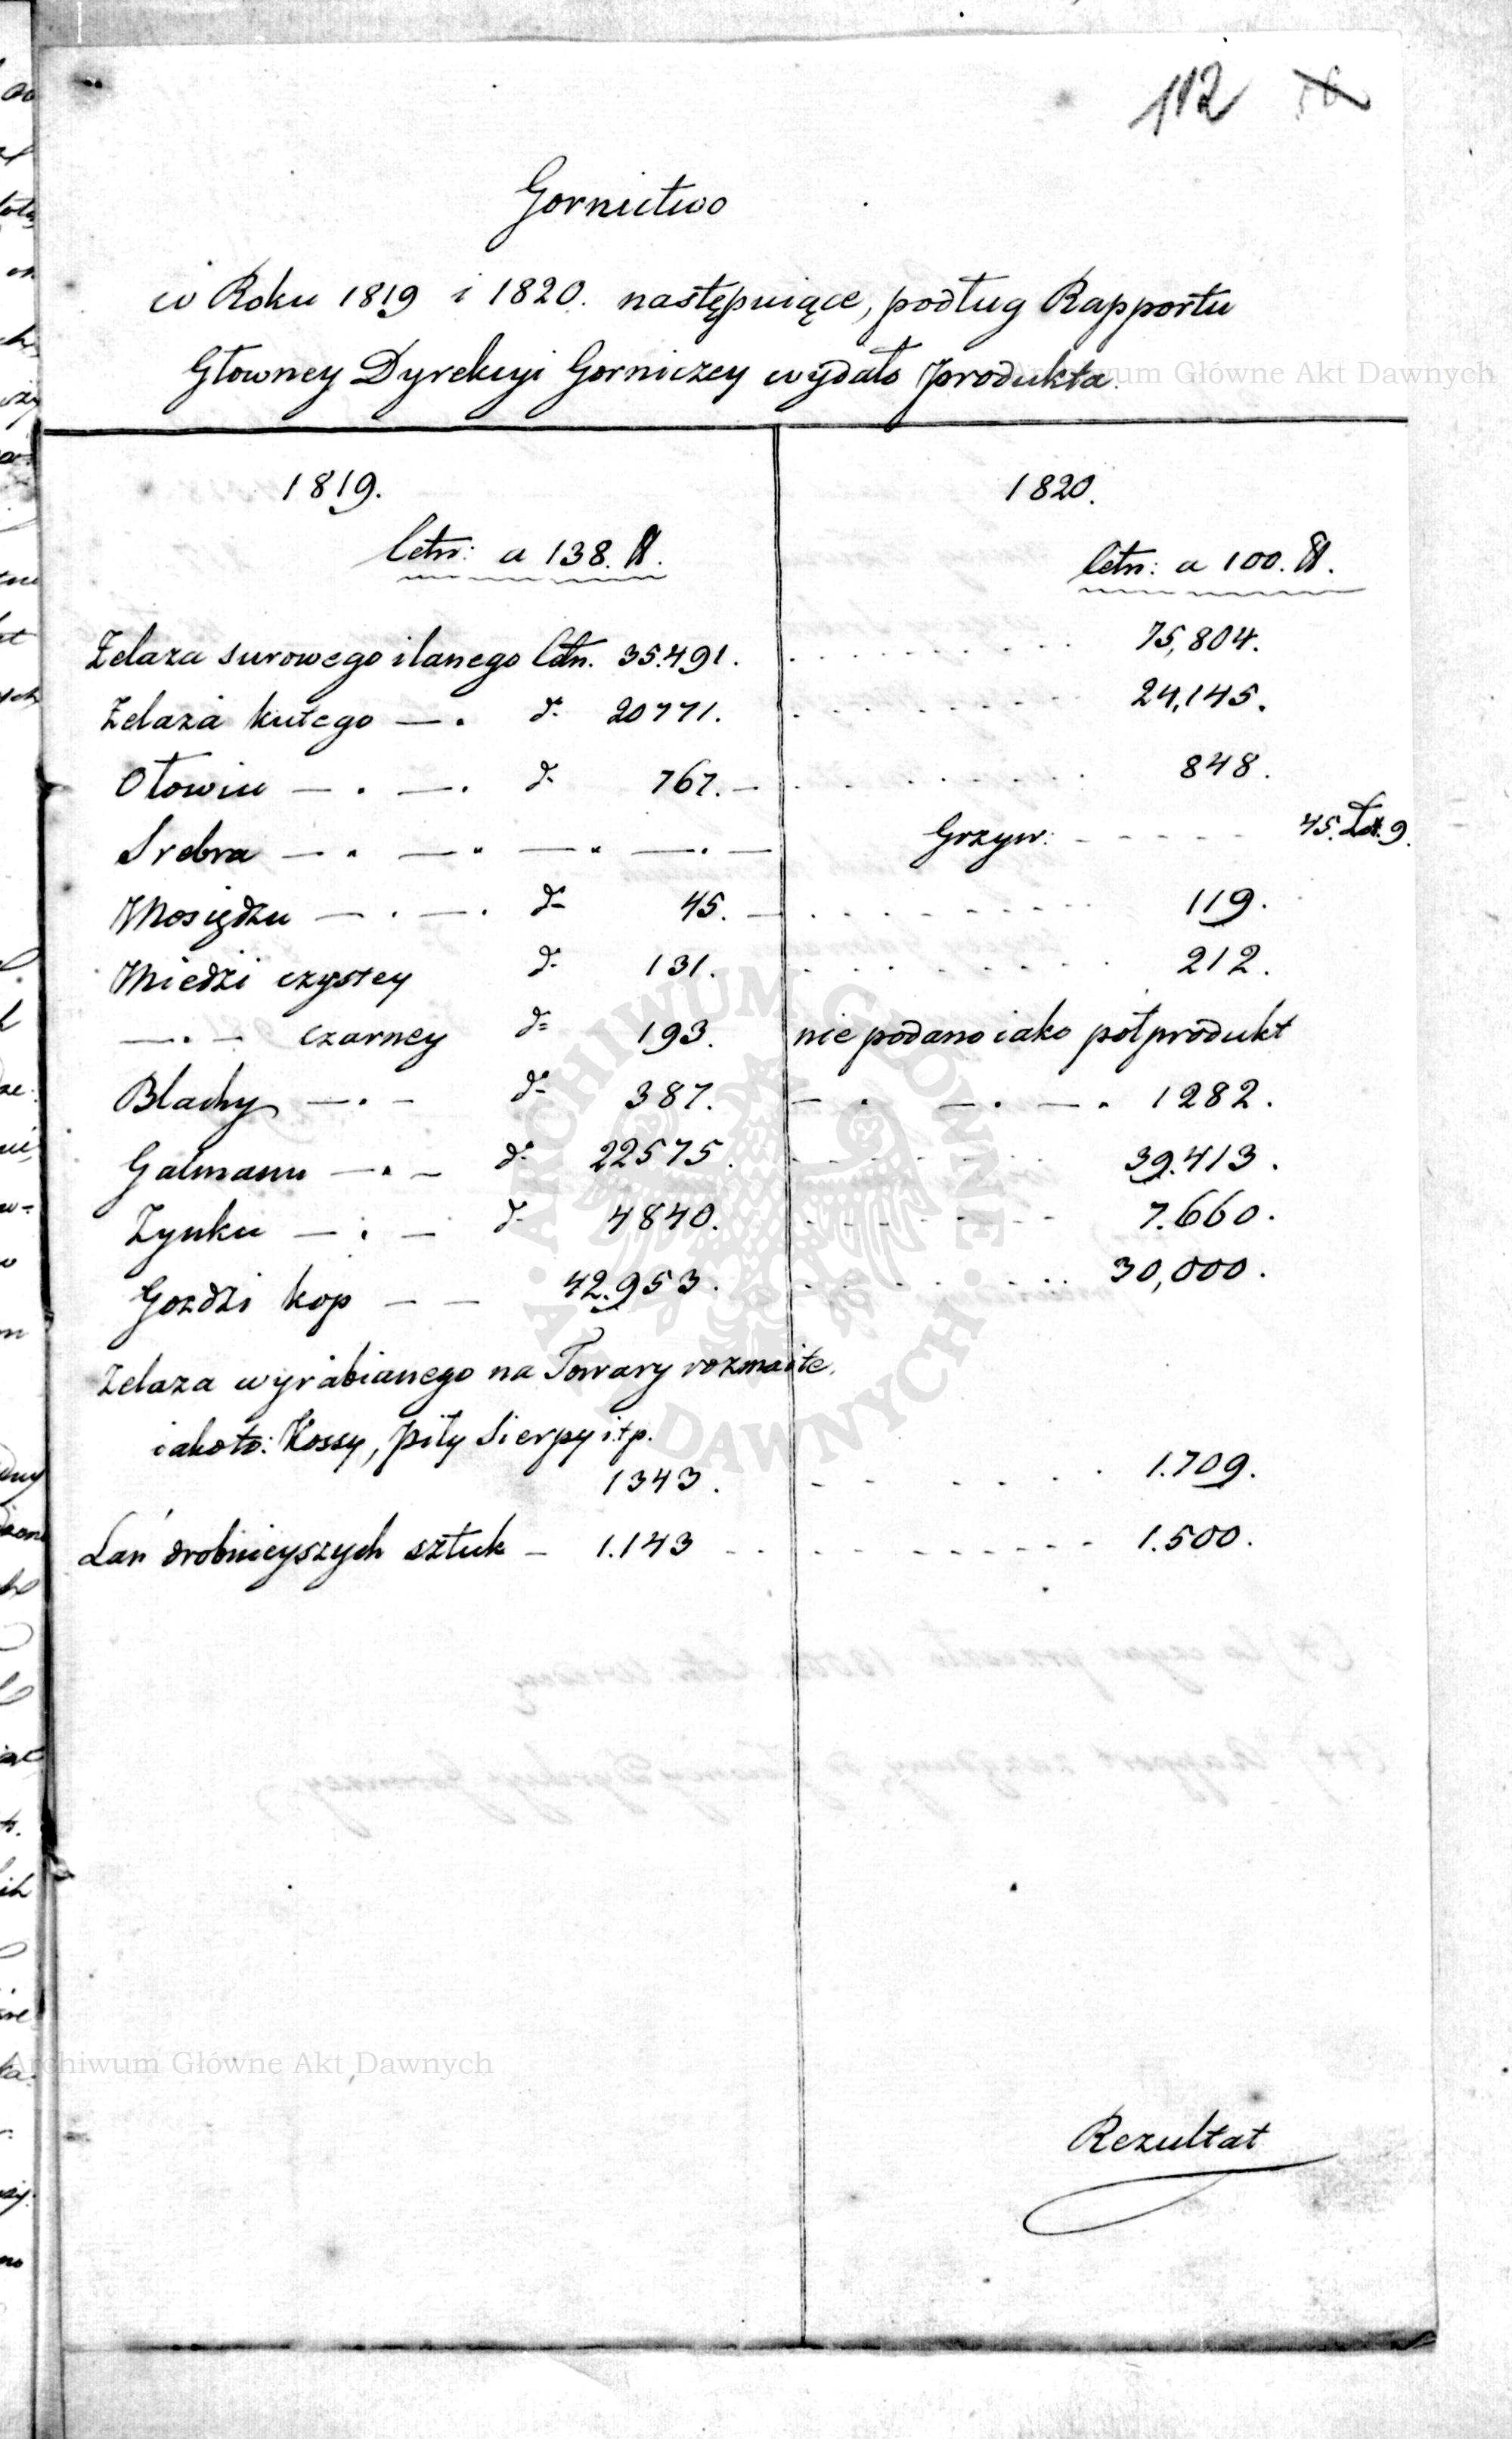 112 56
Gornictwo
w Roku 1819 i 1820. następuiące, podług Rapportu
Głowney Dyrekcyi Gorniczey wydało produkta.
Archiwum Główne Akt Dawnych
1819. 1820.
Cetn: a 138. ℔. Cetn: a 100. ℔.
Żelaza surowego i lanego Cetn. 35.491. 75,804.
Żelaza kutego — . d° 20771. 24,145.
Ołowiu — . — . d° 767. — 848.
Srebra — . — . — . — . — Grzyw: - - - - - 45. Łót. 9.
Mosiądzu — . — . d° 45. — 119.
Miedzi czystey d° 131. 212.
— . — czarney d° 193. nie podano iako półprodukt
Blachy — . — d° 387. — . — . — . 1282.
Galmanu — . — d° 22575. 39.413.
Zynku — . — d° 4840. 7.660.
Gozdzi kop — — 42.953. 30,000.
Żelaza wyrabianego na Towary rozmaite,
iakoto: Kossy, piły Sierpy i.t.p.
1343. 1.709.
Lań drobnieyszych sztuk — 1.143 1.500.
ARCHIWUM GŁÓWNE · AKT DAWNYCH ·
Archiwum Główne Akt Dawnych
Rezultat